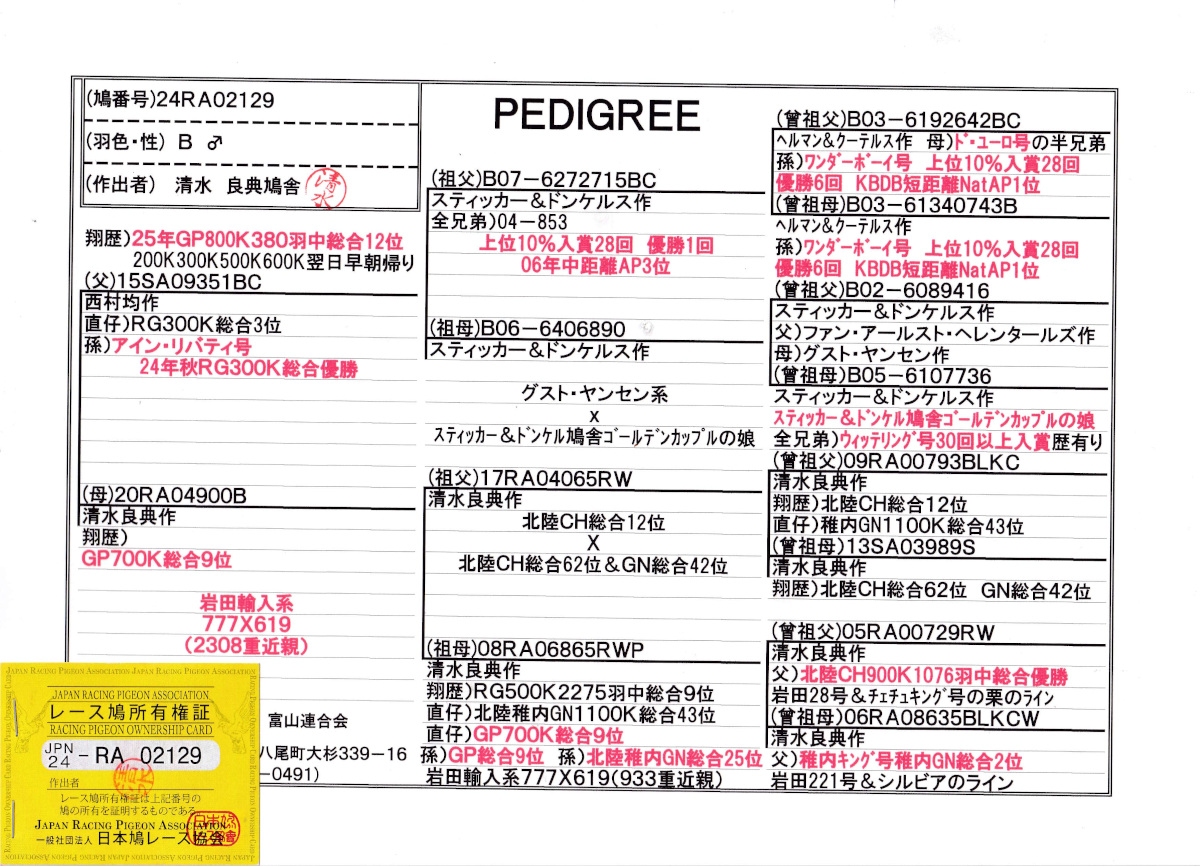 (鳩番号)24RA02129
(羽色・性) B ♂
(作出者) 清水 良典鳩舎
清水
翔歴)25年GP800K380羽中総合12位
200K300K500K600K翌日早朝帰り
(父)15SA09351BC
西村均作
直仔)RG300K総合3位
孫)アイン・リバティ号
24年秋RG300K総合優勝
(母)20RA04900B
清水良典作
翔歴)
GP700K総合9位
岩田輸入系
777X619
(2308重近親)
富山連合会
八尾町大杉339-16
-0491)
PEDIGREE
(祖父)B07-6272715BC
スティッカー&ドンケルス作
全兄弟)04-853
上位10%入賞28回 優勝1回
06年中距離AP3位
(祖母)B06-6406890
スティッカー&ドンケルス作
グスト・ヤンセン系
x
スティッカー&ドンケル鳩舎ゴールデンカップルの娘
(祖父)17RA04065RW
清水良典作
北陸CH総合12位
X
北陸CH総合62位&GN総合42位
(祖母)08RA06865RWP
清水良典作
翔歴)RG500K2275羽中総合9位
直仔)北陸稚内GN1100K総合43位
直仔)GP700K総合9位
孫)GP総合9位 孫)北陸稚内GN総合25位
岩田輸入系777X619(933重近親)
(曾祖父)B03-6192642BC
ヘルマン&ケーテルス作 母)ド・ユーロ号の半兄弟
孫)ワンダーボーイ号 上位10%入賞28回
優勝6回 KBDB短距離NatAP1位
(曾祖母)B03-61340743B
ヘルマン&ケーテルス作
孫)ワンダーボーイ号 上位10%入賞28回
優勝6回 KBDB短距離NatAP1位
(曾祖父)B02-6089416
スティッカー&ドンケルス作
父)ファン・アールスト・ヘレンタールズ作
母)グスト・ヤンセン作
(曾祖母)B05-6107736
スティッカー&ドンケルス作
スティッカー&ドンケル鳩舎ゴールデンカップルの娘
全兄弟)ウィッテリング号30回以上入賞歴有り
(曾祖父)09RA00793BLKC
清水良典作
翔歴)北陸CH総合12位
直仔)稚内GN1100K総合43位
(曾祖母)13SA03989S
清水良典作
翔歴)北陸CH総合62位 GN総合42位
(曾祖父)05RA00729RW
清水良典作
父)北陸CH900K1076羽中総合優勝
岩田28号&チェチュキング号の栗のライン
(曾祖母)06RA08635BLKCW
清水良典作
父)稚内キング号稚内GN総合2位
岩田221号&シルビアのライン
JAPAN RACING PIGEON ASSOCIATION JAPAN RACING PIGEON ASSOCIATION
JAPAN RACING PIGEON ASSOCIATION
レース鳩所有権証
RACING PIGEON OWNERSHIP CARD
JPN
24 -RA 02129
作出者
レース鳩所有権証は上記番号の
鳩の所有を証明するものである
JAPAN RACING PIGEON ASSOCIATION
一般社団法人 日本鳩レース協会